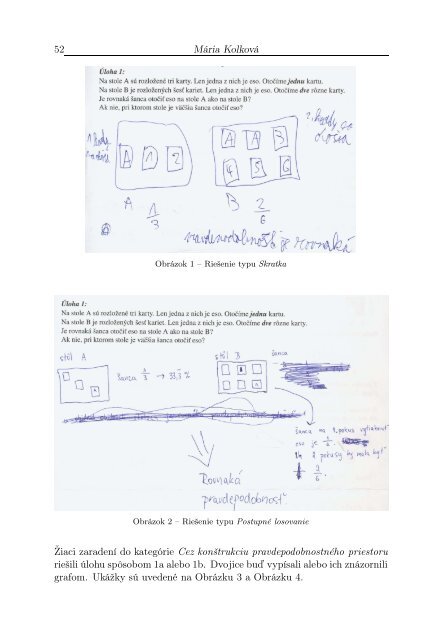 52 Mária Kolková
Úloha 1:
Na stole A sú rozložené tri karty. Len jedna z nich je eso. Otočíme jednu kartu.
Na stole B je rozložených šesť kariet. Len jedna z nich je eso. Otočíme dve rôzne karty.
Je rovnaká šanca otočiť eso na stole A ako na stole B?
Ak nie, pri ktorom stole je väčšia šanca otočiť eso?
A 1 2
A A 3
4 5 6
A 1/3
B 2/6
pravdepodobnosť je rovnaká
Obrázok 1 – Riešenie typu Skratka
Úloha 1:
Na stole A sú rozložené tri karty. Len jedna z nich je eso. Otočíme jednu kartu.
Na stole B je rozložených šesť kariet. Len jedna z nich je eso. Otočíme dve rôzne karty.
Je rovnaká šanca otočiť eso na stole A ako na stole B?
Ak nie, pri ktorom stole je väčšia šanca otočiť eso?
stôl A
šanca 1/3 → 33,3 %
stôl B
šanca
šanca na 1. pokus vytiahnuť
eso je 1/6.
2 pokusy by mala byť
2/6.
Rovnaká
pravdepodobnosť
Obrázok 2 – Riešenie typu Postupné losovanie
Žiaci zaradení do kategórie Cez konštrukciu pravdepodobnostného priestoru
riešili úlohu spôsobom 1a alebo 1b. Dvojice buď vypísali alebo ich znázornili
grafom. Ukážky sú uvedené na Obrázku 3 a Obrázku 4.